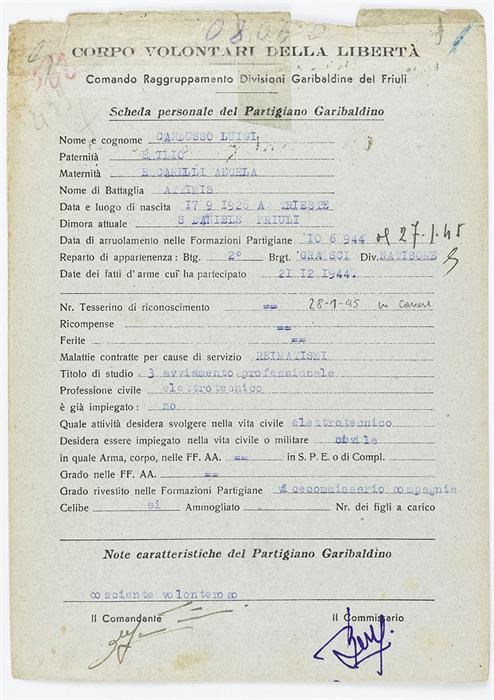 CORPO VOLONTARI DELLA LIBERTÀ
Comando Raggruppamento Divisioni Garibaldine del Friuli
Scheda personale del Partigiano Garibaldino
Nome e cognome CANDUSSO LUIGI
Paternità EMILIO
Maternità ANGELA
Nome di Battaglia ATTIMIS
Data e luogo di nascita 17 9 1926 A TRIESTE
Dimora attuale S DANIELE FRIULI
Data di arruolamento nelle Formazioni Partigiane 10 6 944 al 27.1.45
Reparto di appartenenza: Btg. 2° Brgt. GRAMSCI Div. NATISONE
Date dei fatti d'arme cui ha partecipato 21 12 1944
Nr. Tesserino di riconoscimento == 28-1-45 in Carcere
Ricompense ==
Ferite ==
Malattie contratte per cause di servizio REIMATISMI
Titolo di studio 3 avviamento professionale
Professione civile elettrotecnico
è già impiegato: no
Quale attività desidera svolgere nella vita civile elettrotecnico
Desidera essere impiegato nella vita civile o militare civile
in quale Arma, corpo, nelle FF. AA. == in S. P. E. o di Compl.
Grado nelle FF. AA. ==
Grado rivestito nelle Formazioni Partigiane vicecommissario compagnia
Celibe si Ammogliato Nr. dei figli a carico
Note caratteristiche del Partigiano Garibaldino
cosciente volonteroso
Il Comandante Il Commissario